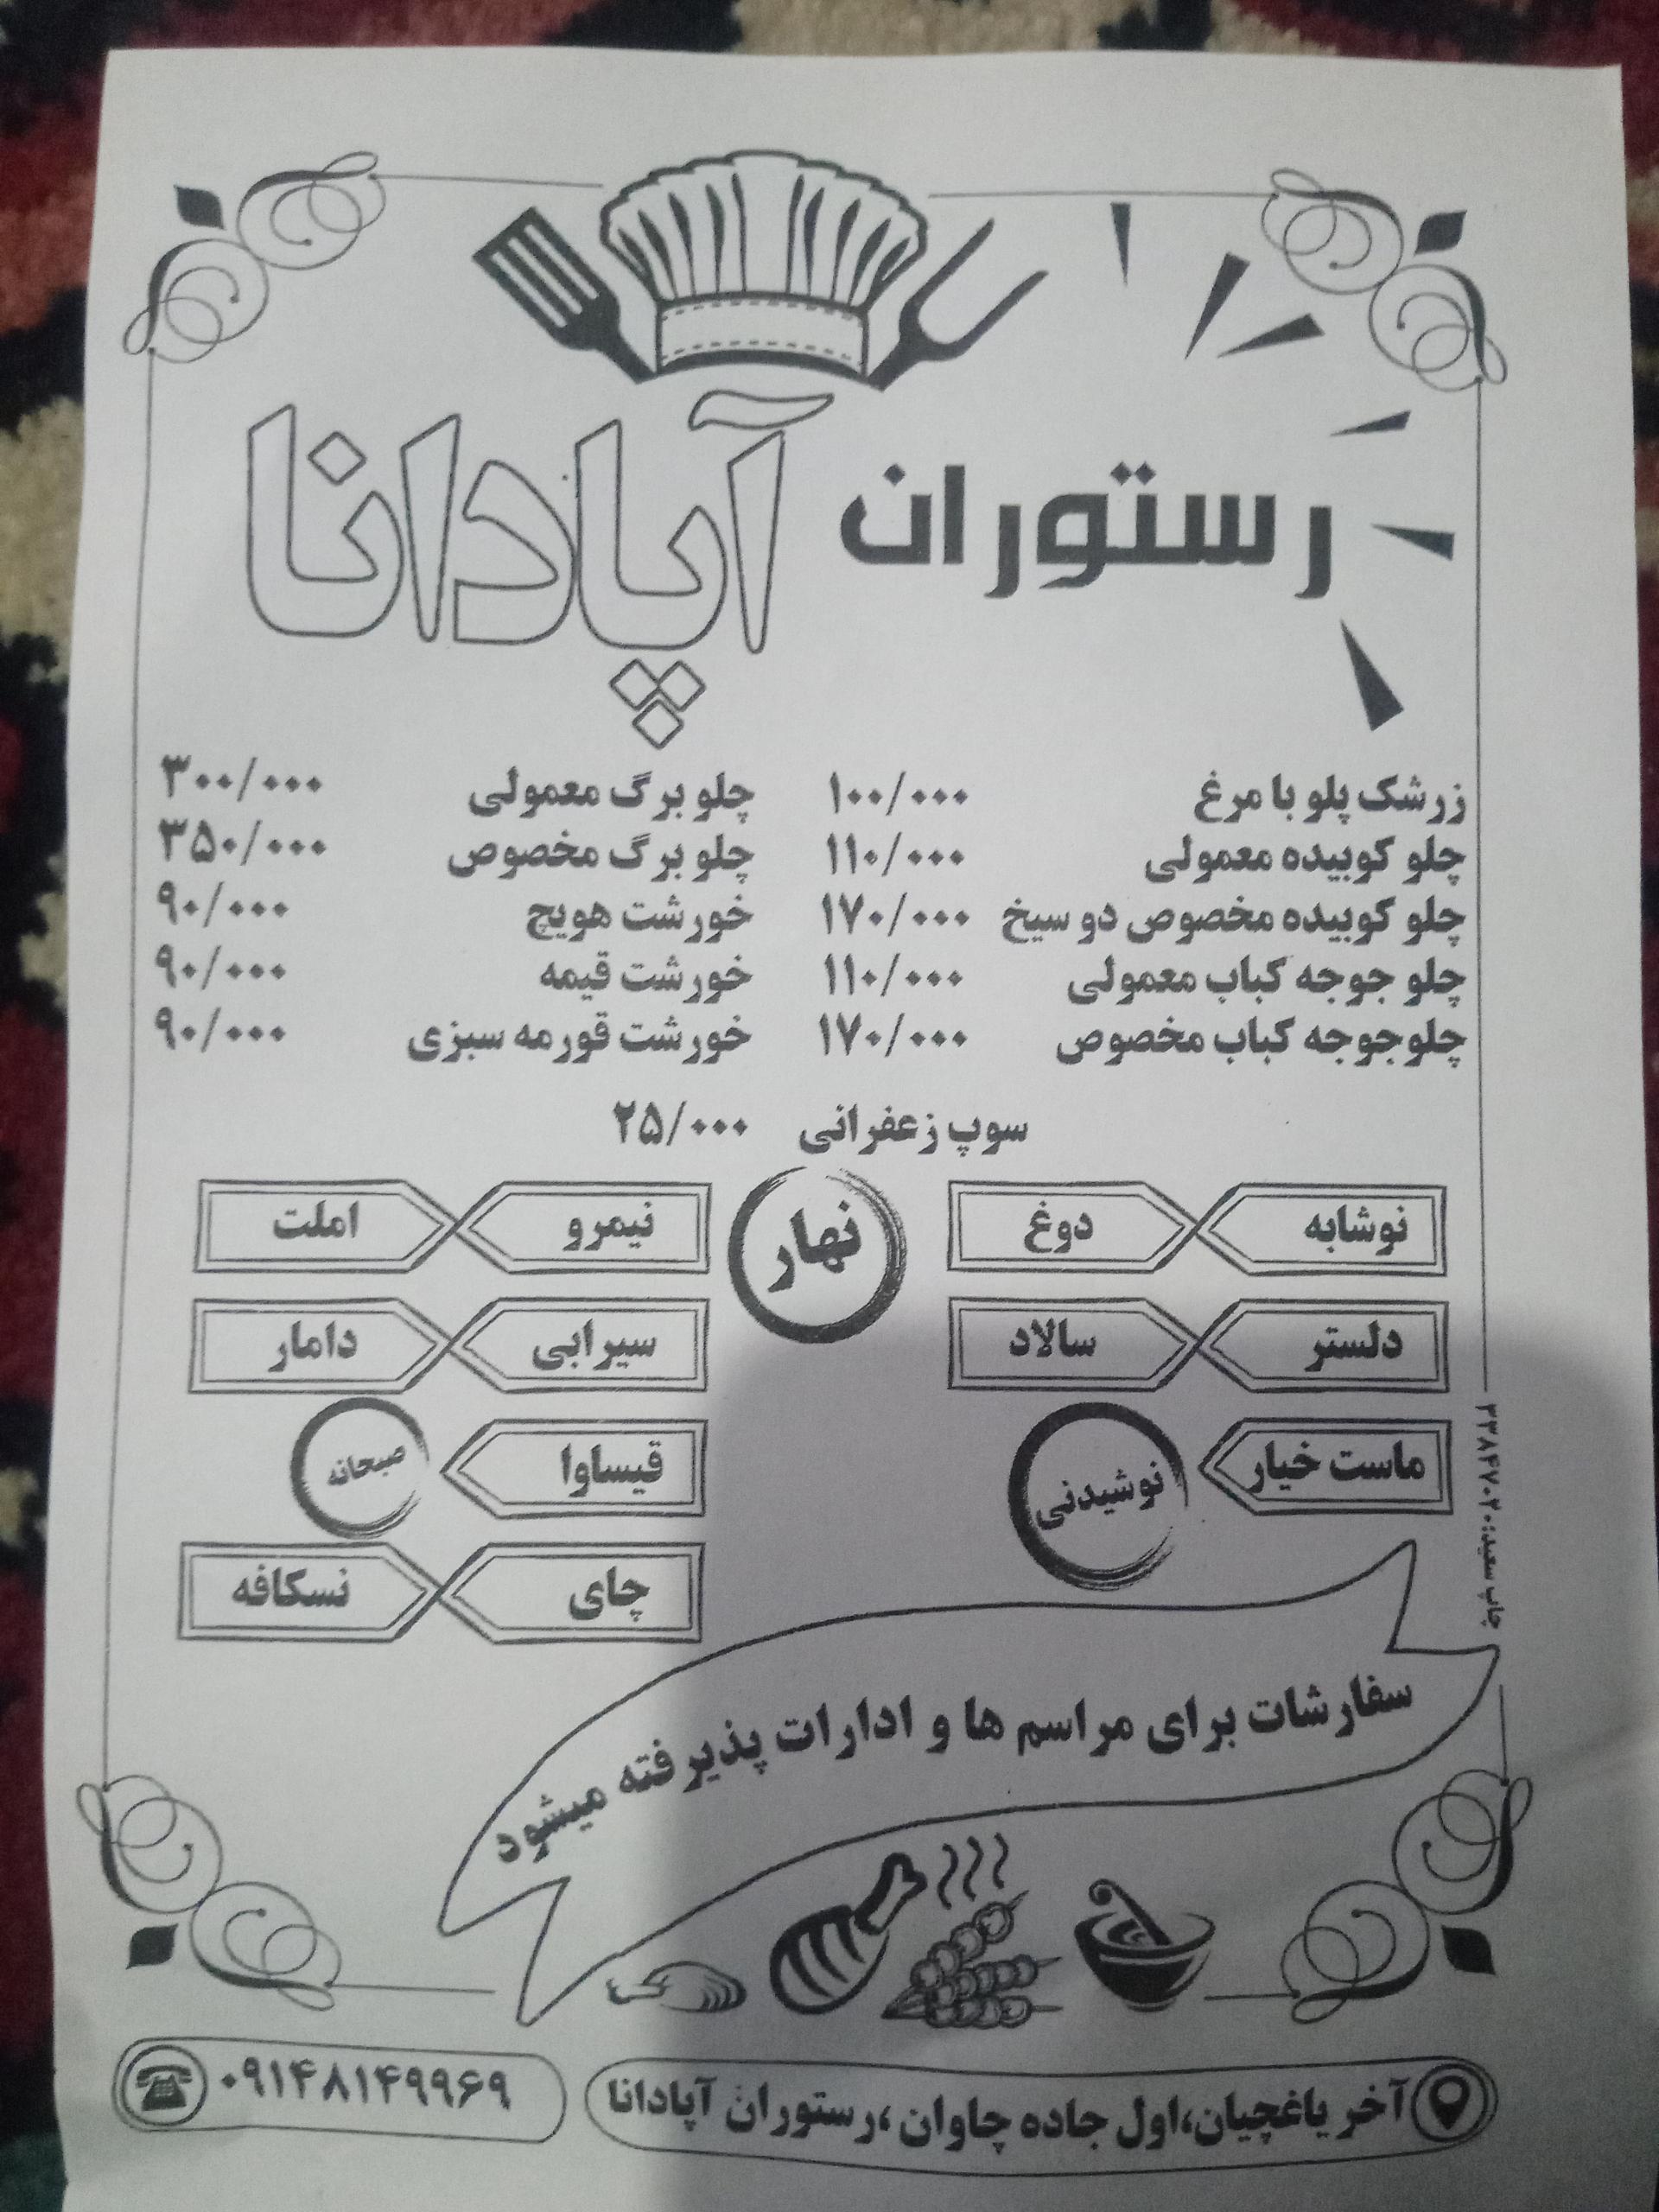 رستوران آپادانا
زرشک پلو با مرغ ۱۰۰/۰۰۰
چلو کوبیده معمولی ۱۱۰/۰۰۰
چلو کوبیده مخصوص دو سیخ ۱۷۰/۰۰۰
چلو جوجه کباب معمولی ۱۱۰/۰۰۰
چلوجوجه کباب مخصوص ۱۷۰/۰۰۰
چلو برگ معمولی ۳۰۰/۰۰۰
چلو برگ مخصوص ۳۵۰/۰۰۰
خورشت هویچ ۹۰/۰۰۰
خورشت قیمه ۹۰/۰۰۰
خورشت قورمه سبزی ۹۰/۰۰۰
سوپ زعفرانی ۲۵/۰۰۰
نهار
نوشابه دوغ
دلستر سالاد
ماست خیار
نوشیدنی
نیمرو املت
سیرابی دامار
قیساوا
صبحانه
چای نسکافه
چاپ سعید:
سفارشات برای مراسم ها و ادارات پذیرفته میشود
آخر یاغچیان،اول جاده چاوان ،رستوران آپادانا
۰۹۱۴۸۱۴۹۹۶۹